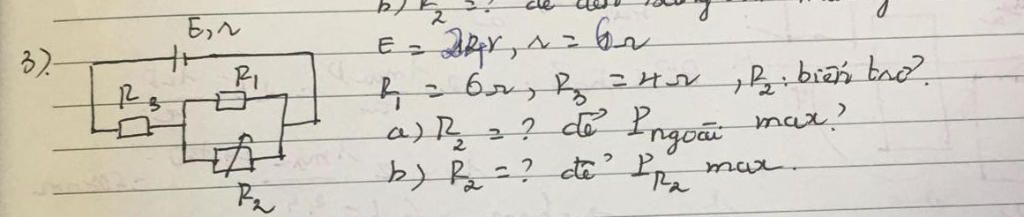 b) R₂ = ? để
3).
E, r
R₁
R₃
R₂
E = 24V, r = 6Ω
R₁ = 6Ω, R₃ = 4Ω, R₂: biến trở.
a) R₂ = ? để P ngoài max?
b) R₂ = ? để P R₂ max.